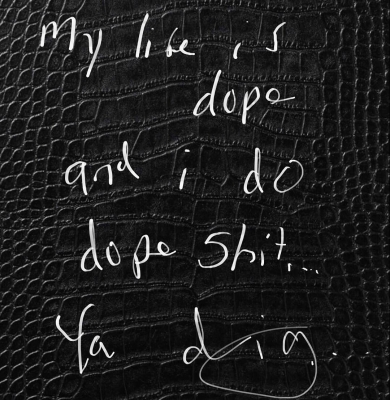 My life is
dope
and i do
dope shit...
Ya dig..